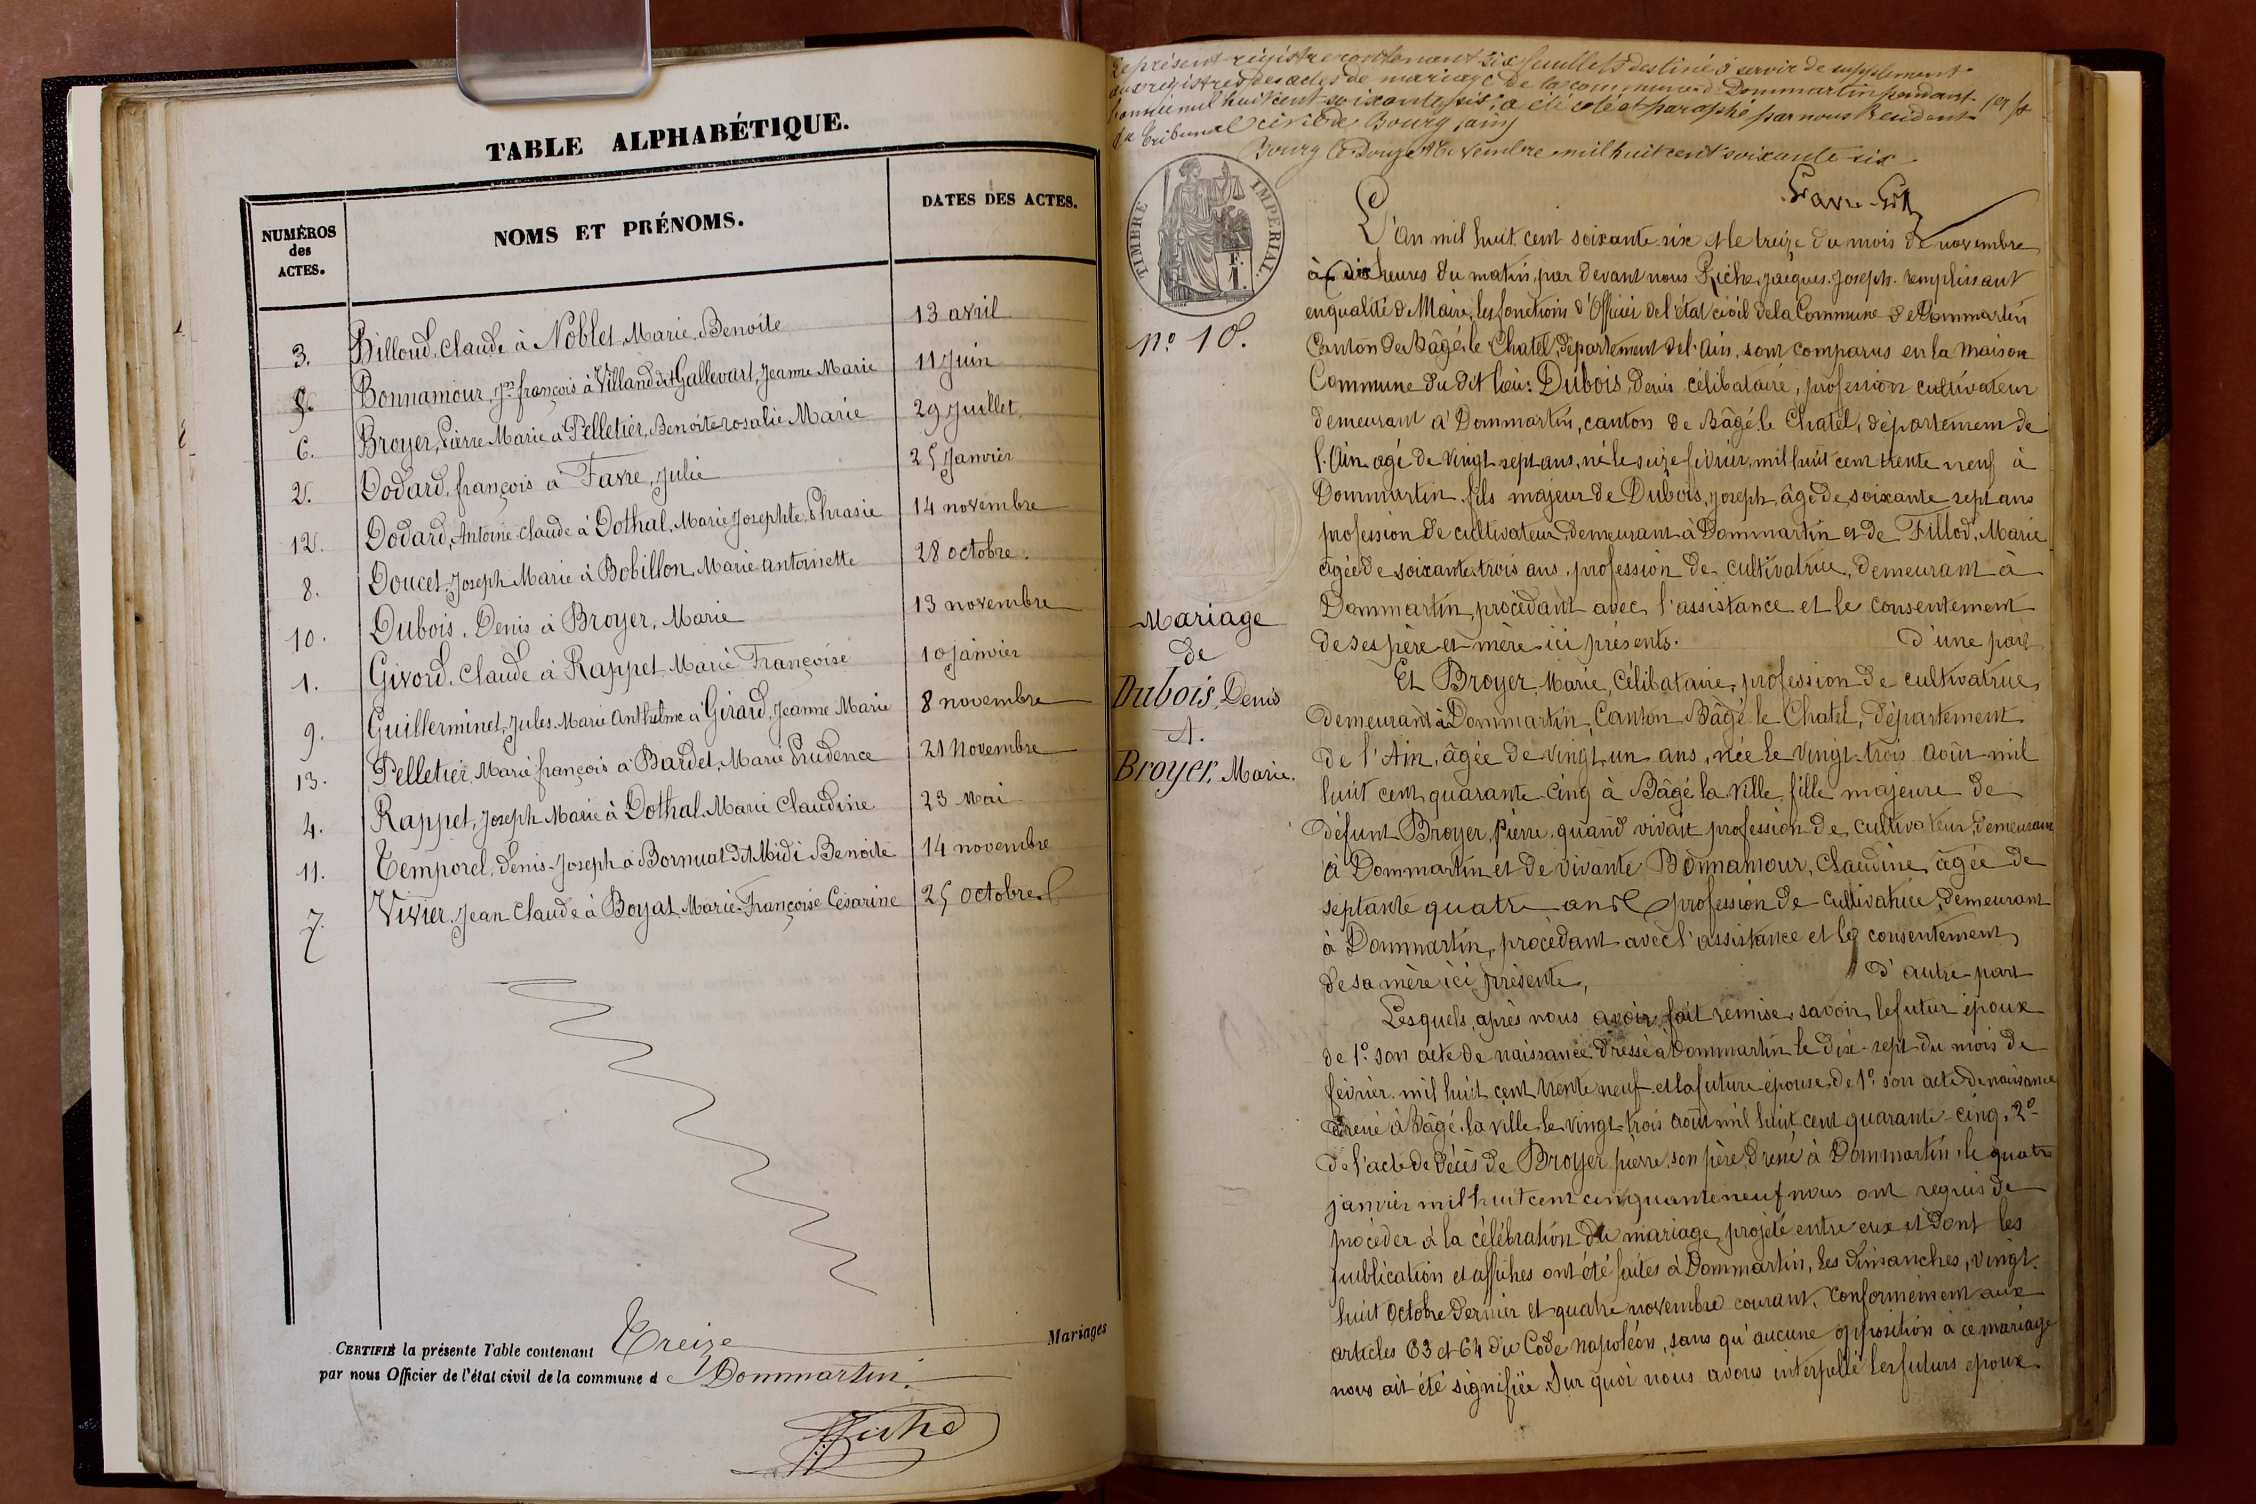 TABLE ALPHABÉTIQUE.
NUMÉROS des ACTES.
NOMS ET PRÉNOMS.
DATES DES ACTES.
3. Billoud, Claude à Noblet, Marie, Benoite 13 avril
5. Bonnamour, Jn françois à Villand dit Gallevart, Jeanne Marie 11 Juin
6. Broyer, Pierre Marie à Pelletier, Benoite rosalie Marie 29 Juillet
2. Dodard, françois à Favre, Julie 25 Janvier
12. Dodard, Antoine Claude à Dothal, Marie Josephte Phrasie 14 novembre
8. Doucet, Joseph Marie à Bobillon, Marie antoinette 28 octobre.
10. Dubois, Denis à Broyer, Marie 13 novembre
1. Givord, Claude à Rappet Marie Françoise 10 Janvier
9. Guillerminet, Jules Marie Anthelme à Girard, Jeanne Marie 8 novembre
13. Pelletier, Marie françois à Bardet, Marie Prudence 21 Novembre
4. Rappet, Joseph Marie à Dothal, Marie Claudine 23 Mai
11. Temporel, Denis-Joseph à Bornuat dit Midi Benoite 14 novembre
7. Vivier, Jean Claude à Boyat Marie-Françoise Césarine 25 octobre
CERTIFIÉ la présente Table contenant Treize Mariages
par nous Officier de l'état civil de la commune d Dommartin.
Le présent registre contenant six feuillets destiné à servir de supplément
aux registres des actes de mariage de la commune de Dommartin pendant
l'année mil huit cent soixante six, a été coté et paraphé par nous Président
du Tribunal civil de Bourg (ain)
Bourg le Douze Novembre mil huit cent soixante six
TIMBRE IMPÉRIAL.
L'an mil huit cent soixante six et le treize du mois de novembre
à dix heures du matin, par devant nous Riche, Jacques-Joseph remplissant
en qualité de Maire, les fonctions d'Officier de l'état civil de la Commune de Dommartin
n° 10.
Canton de Bâgé-le Chatel, Département de l'ain, sont comparus en la Maison
Commune du dit lieu: Dubois, Denis célibataire, profession cultivateur
demeurant à Dommartin, canton de Bâgé-le Chatel, département de
l'Ain agé de vingt sept ans, né le seize février, mil huit cent trente neuf à
Dommartin fils majeur de Dubois, Joseph, âgé de soixante sept ans
profession de cultivateur, demeurant à Dommartin et de Fillod, Marie
agée de soixante trois ans, profession de cultivatrice, demeurant à
Dommartin, procédant avec l'assistance et le consentement
de ses père et mère ici présents. D'une part
Mariage
de
Dubois, Denis
A.
Broyer, Marie.
Et Broyer, Marie, célibataire, profession de cultivatrice,
demeurant à Dommartin, Canton Bâgé le Chatel, Département
de l'Ain, âgée de vingt un ans, née le vingt-trois août mil
huit cent quarante-cinq à Bâgé la ville, fille majeure de
défunt Broyer, Pierre quand vivait profession de cultivateur, demeurant
à Dommartin et de vivante Bonnamour, Claudine, âgée de
septante quatre ans profession de cultivatrice, demeurant
à Dommartin, procédant avec l'assistance et le consentement
de sa mère ici présente, D'autre part
Lesquels, après nous avoir fait remise, savoir, le futur époux
de 1° son acte de naissance dressé à Dommartin le dix-sept du mois de
février mil huit cent trente neuf et la future épouse, de 1° son acte de naissance
dressé à Bâgé-la ville le vingt-trois août mil huit cent quarante-cinq, 2°
de l'acte de décès de Broyer pierre, son père, dressé à Dommartin, le quatre
janvier mil huit cent cinquante neuf nous ont requis de
procéder à la célébration du mariage projeté entre eux et dont les
publication et affiches ont été faites à Dommartin, les dimanches, vingt-
huit Octobre dernier et quatre novembre courant, conformément aux
articles 63 et 64 du Code Napoléon, sans qu'aucune opposition à ce mariage
nous ait été signifiée. Sur quoi nous avons interpellé les futurs époux